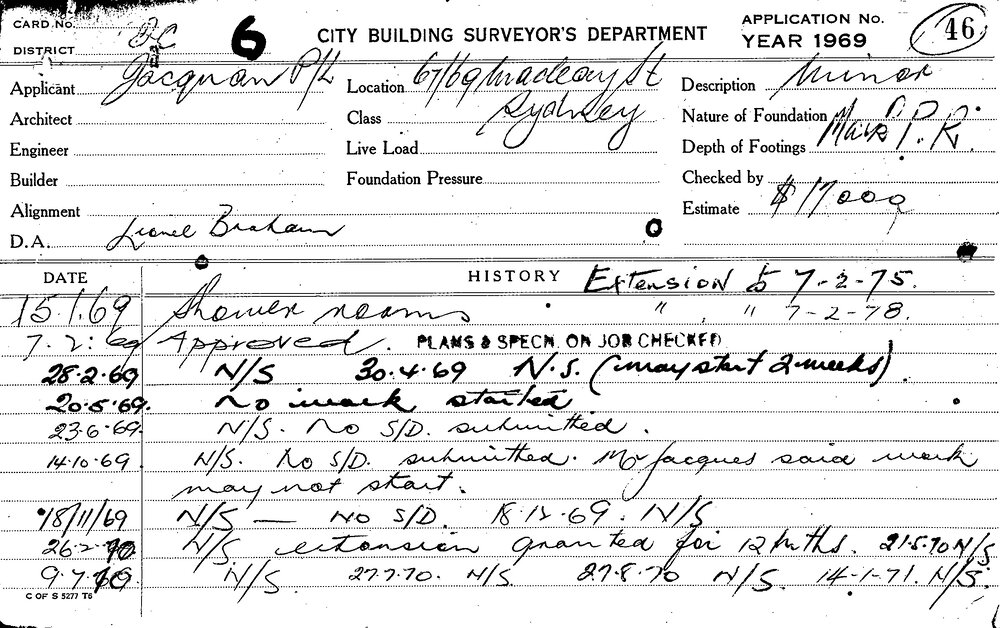 CARD No.
DISTRICT
6
CITY BUILDING SURVEYOR'S DEPARTMENT
APPLICATION No.
YEAR 1969
46
Applicant Jacquan P/L
Location 67/69 Macleay St
Sydney
Description Minor
Architect
Class
Nature of Foundation
Engineer
Live Load
Depth of Footings
Builder
Foundation Pressure
Checked by
Alignment
Estimate $17000
D.A. Lionel Braham
DATE
HISTORY Extension to 7-2-75.
15.1.69 Shower rooms " " 7-2-78.
7.2.69 Approved. PLANS & SPECN. ON JOB CHECKED
28.2.69 N/S 30.4.69 N.S. (may start 2 weeks).
20.5.69. No work started
23.6.69. N/S. No S/D. submitted.
14.10.69. N/S. No S/D. submitted. Mr Jacques said work
may not start.
18/11/69 N/S — No S/D. 18.12.69. N/S
26.2.70 N/S. extension granted for 12 mths. 21.5.70 N/S
9.7.70 N/S. 27.7.70. N/S. 27.8.70 N/S. 14-1-71. N/S.
C OF S 5277 T6